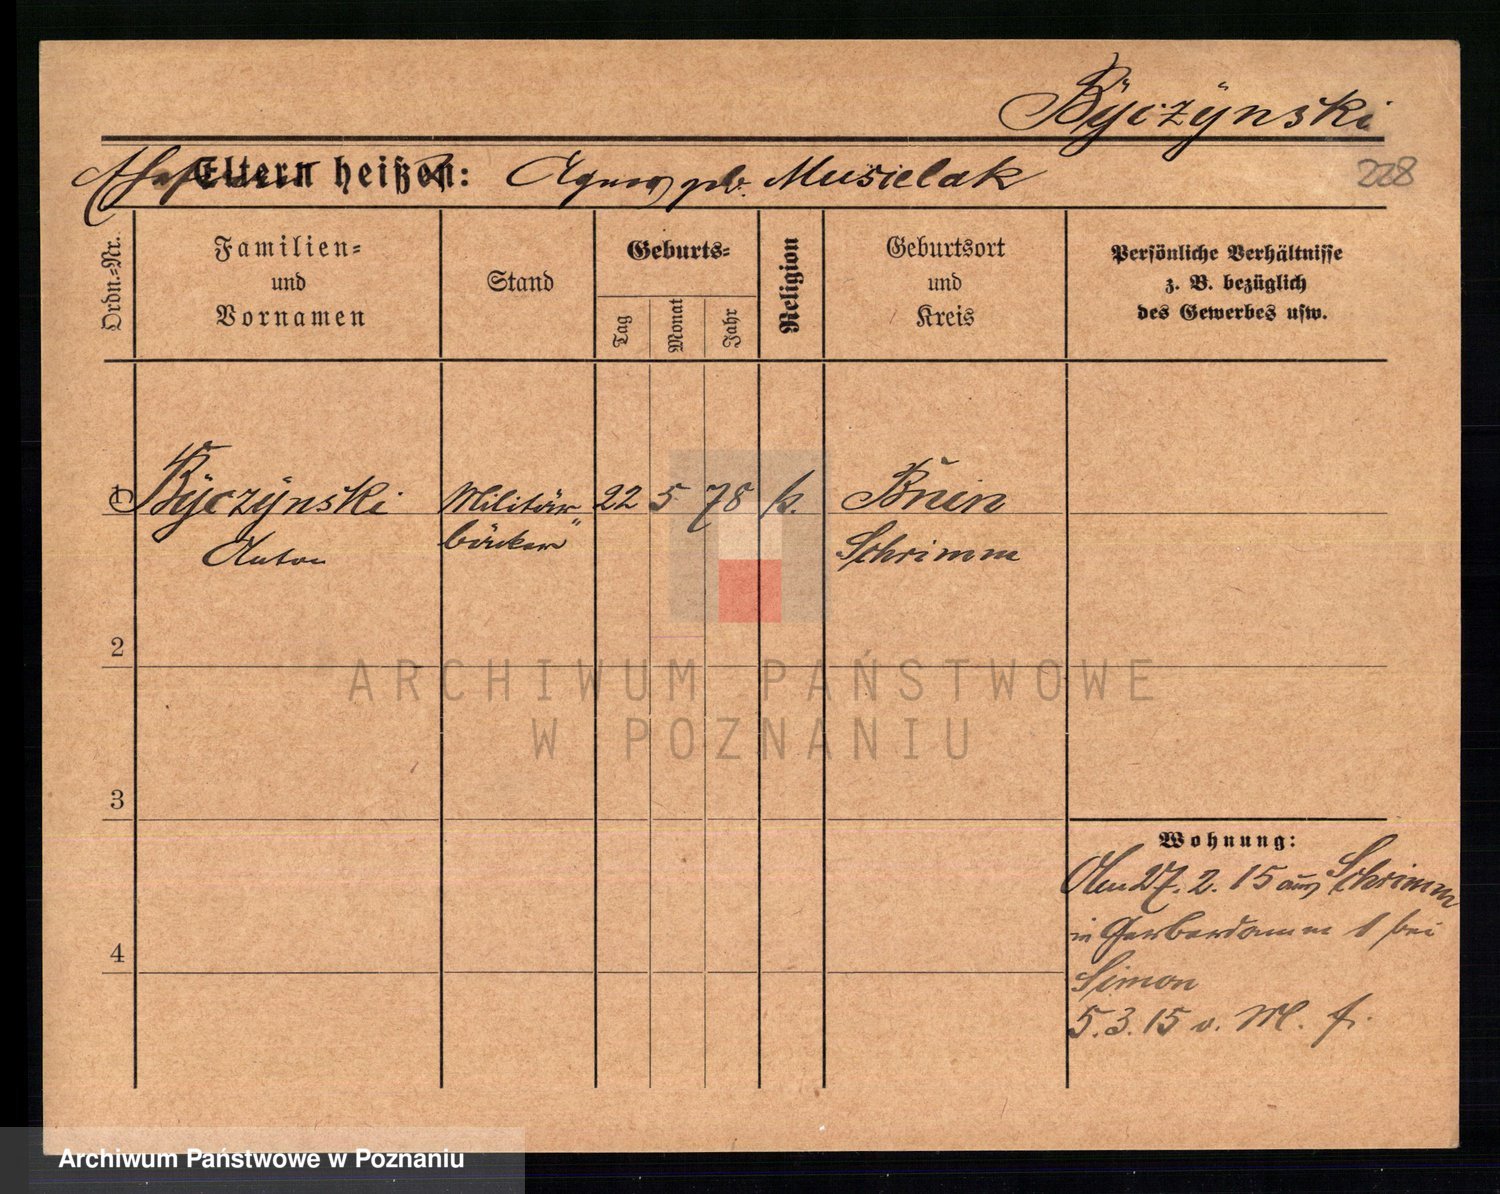 Byczynski
Eltern heißen: Agnes gb. Musielak
228
Ordn.-Nr.
Familien-
und
Vornamen
Stand
Geburts-
Tag
Monat
Jahr
Religion
Geburtsort
und
Kreis
Persönliche Verhältnisse
z. B. bezüglich
des Gewerbes usw.
1 Byczynski Militär 22 5 78 k. Bnin
Anton bäcker Schrimm
2
ARCHIWUM PAŃSTWOWE
W POZNANIU
3
Wohnung:
27. 2. 15 aus Schrimm
in Gerberdamm 1 bei
Simon
5.3.15 v. M. f.
4
Archiwum Państwowe w Poznaniu